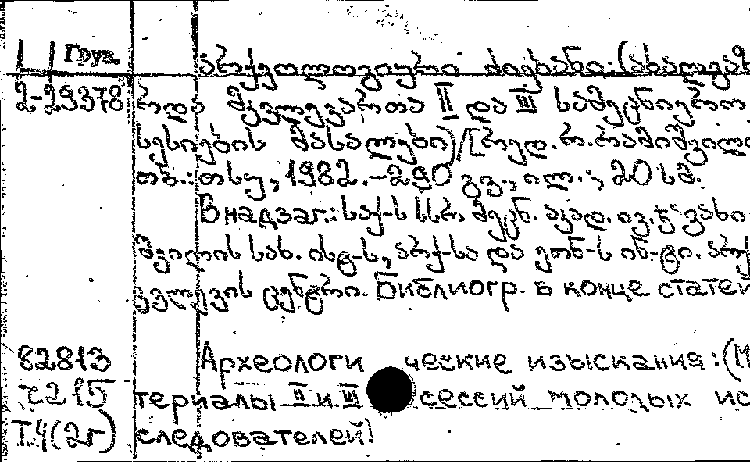 Груз. არქეოლოგიური ძიებანი: (ახალგაზ
2-29378 რდა მკვლევართა II და III სამეცნიერო
სესიების მასალები)/[რედ. რ. რამიშვილი
თბ.: თსუ, 1982. - 290 გვ., ილ.; 20 სმ.
В надзаг.: საქ-ს სსრ მეცნ. აკად. ივ. ჯავახი
შვილის სახ. ისტ-ს, არქ-სა და ეთნ-ს ინ-ტი. არქ
კვლევის ცენტრი. Библиогр. в конце статей
82813 Археологи ческие изыскания: (М
с215 териалы II и III сессий молодых ис
Т.4(2г) следователей)